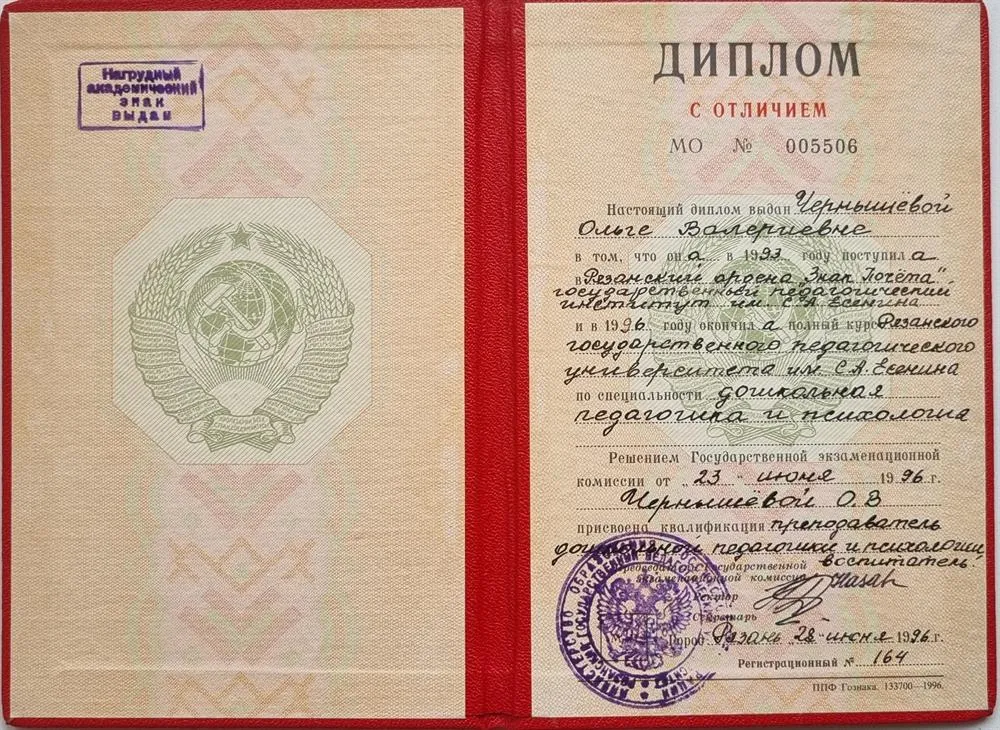 Нагрудный
академический
знак
выдан
ДИПЛОМ
С ОТЛИЧИЕМ
МО № 005506
Настоящий диплом выдан Чернышёвой
Ольге Валериевне
в том, что она в 1993 году поступила
в Рязанский ордена "Знак Почёта"
государственный педагогический
институт им. С.А. Есенина
и в 1996 году окончила полный курс Рязанского
государственного педагогического
университета им. С.А. Есенина
по специальности дошкольная
педагогика и психология
Решением Государственной экзаменационной
комиссии от „23“ июня 1996 г.
Чернышёвой О.В
присвоена квалификация преподаватель
дошкольной педагогики и психологии,
воспитатель.
Председатель Государственной
экзаменационной комиссии
Ректор
Секретарь
Город Рязань 28 „ июня 1996 г.
Регистрационный № 164
ППФ Гознака. 133700—1996.